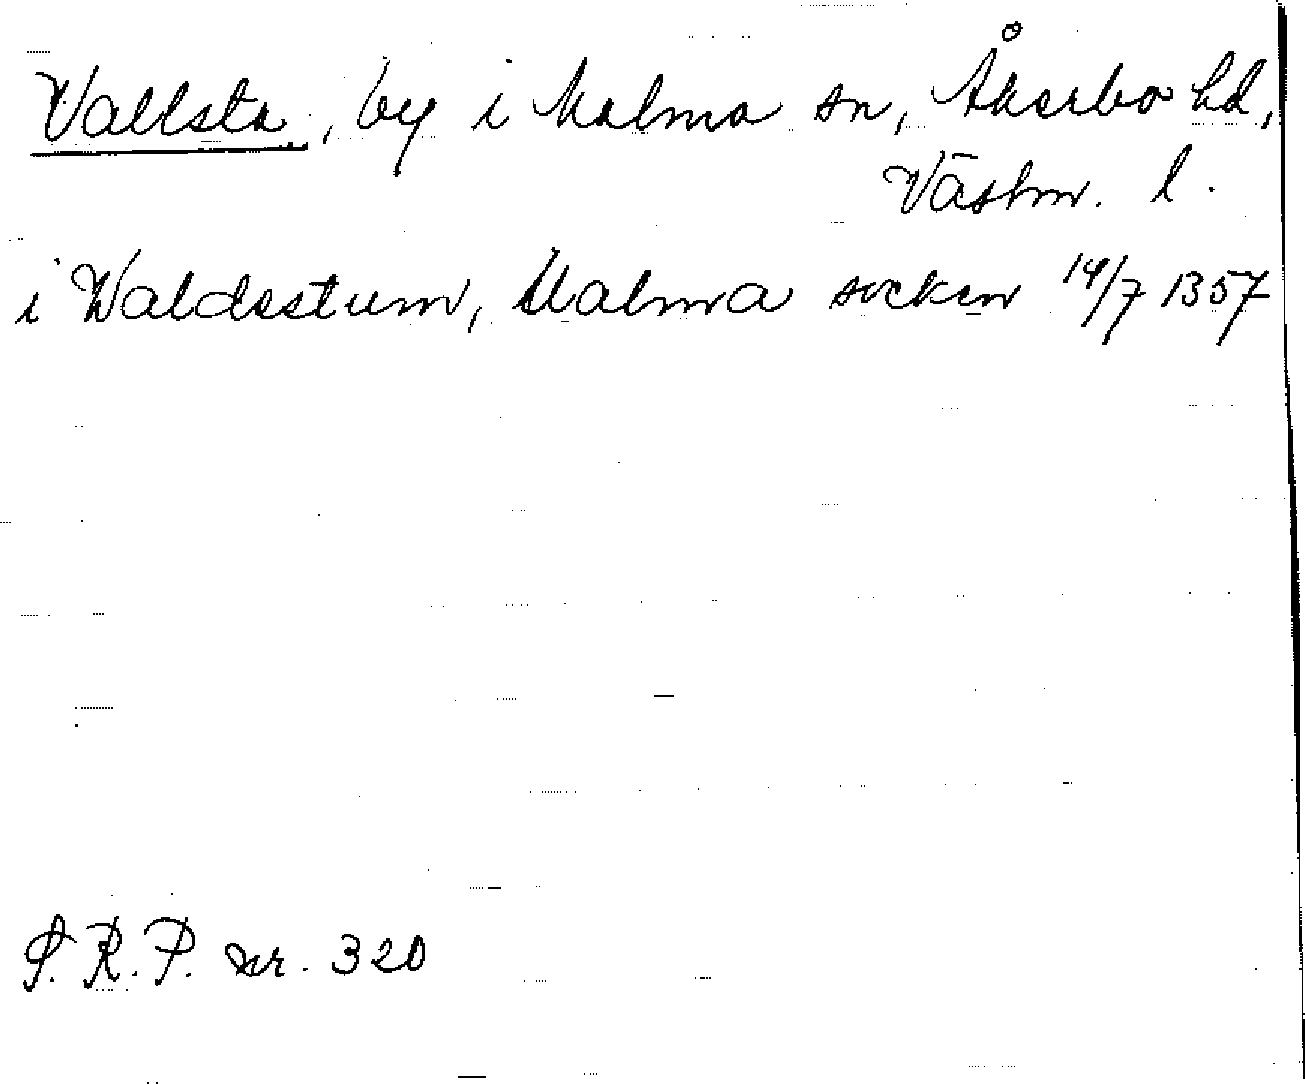 Vallsta, by i Malma sn, Åkerbo hd,
Västm. l.
i Waldsstum, Malma socken 14/7 1357
S. R. P. nr. 320